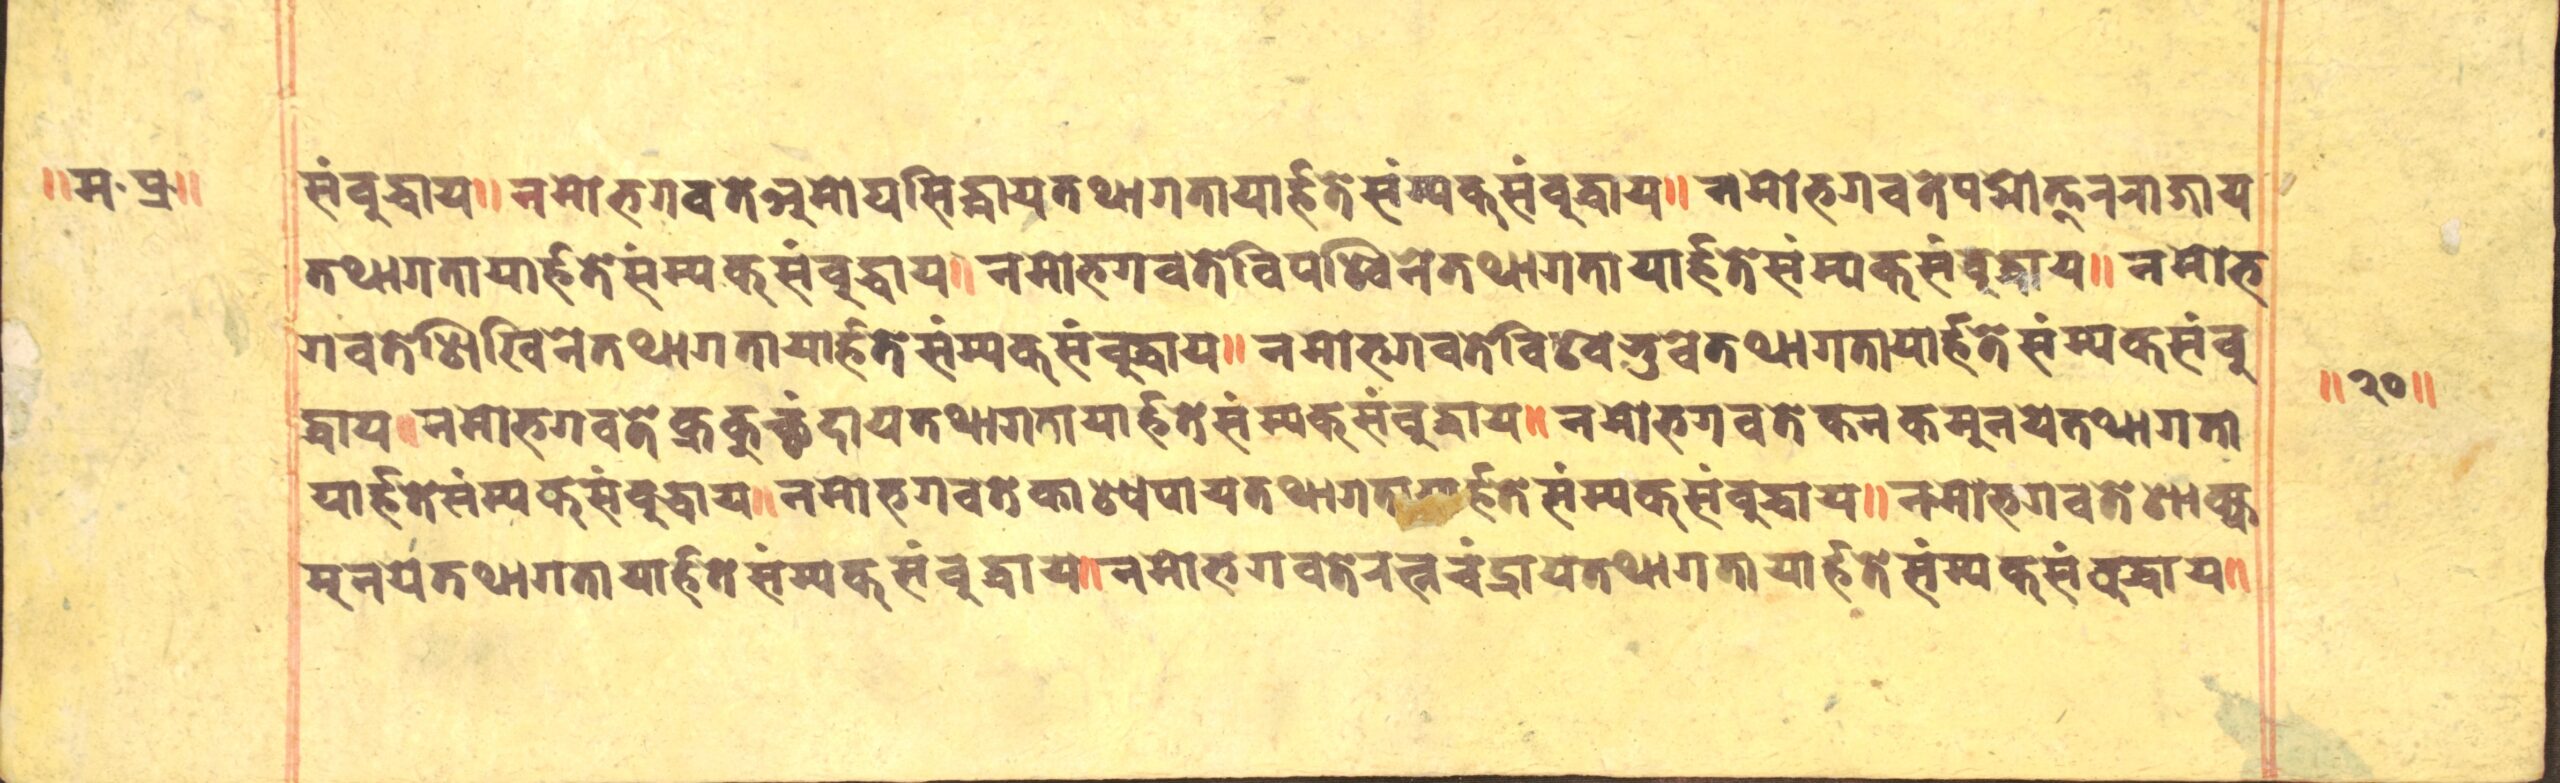 ॥म·प्र॥
संबुद्धाय॥ नमोभगवतेअमोघसिद्धायतथागतायार्हतेसंम्यक्संबुद्धाय॥ नमोभगवतेपद्मोत्तरराजाय
तथागतायार्हतेसंम्यक्संबुद्धाय॥ नमोभगवतेविपश्विनेतथागतायार्हतेसंम्यक्संबुद्धाय॥ नमोभ
गवतेशिखिनेतथागतायार्हतेसंम्यक्संबुद्धाय॥ नमोभगवतेविश्वभुवेतथागतायार्हतेसंम्यक्संबु
॥२०॥
द्धाय॥ नमोभगवतेक्रकुच्छंदायतथागतायार्हतेसंम्यक्संबुद्धाय॥ नमोभगवतेकनकमुनयेतथागता
यार्हतेसंम्यक्संबुद्धाय॥ नमोभगवतेकाश्यपायतथागतायार्हतेसंम्यक्संबुद्धाय॥ नमोभगवतेशाक्य
मुनयेतथागतायार्हतेसंम्यक्संबुद्धाय॥ नमोभगवतेरत्नचंद्रायतथागतायार्हतेसंम्यक्संबुद्धाय॥